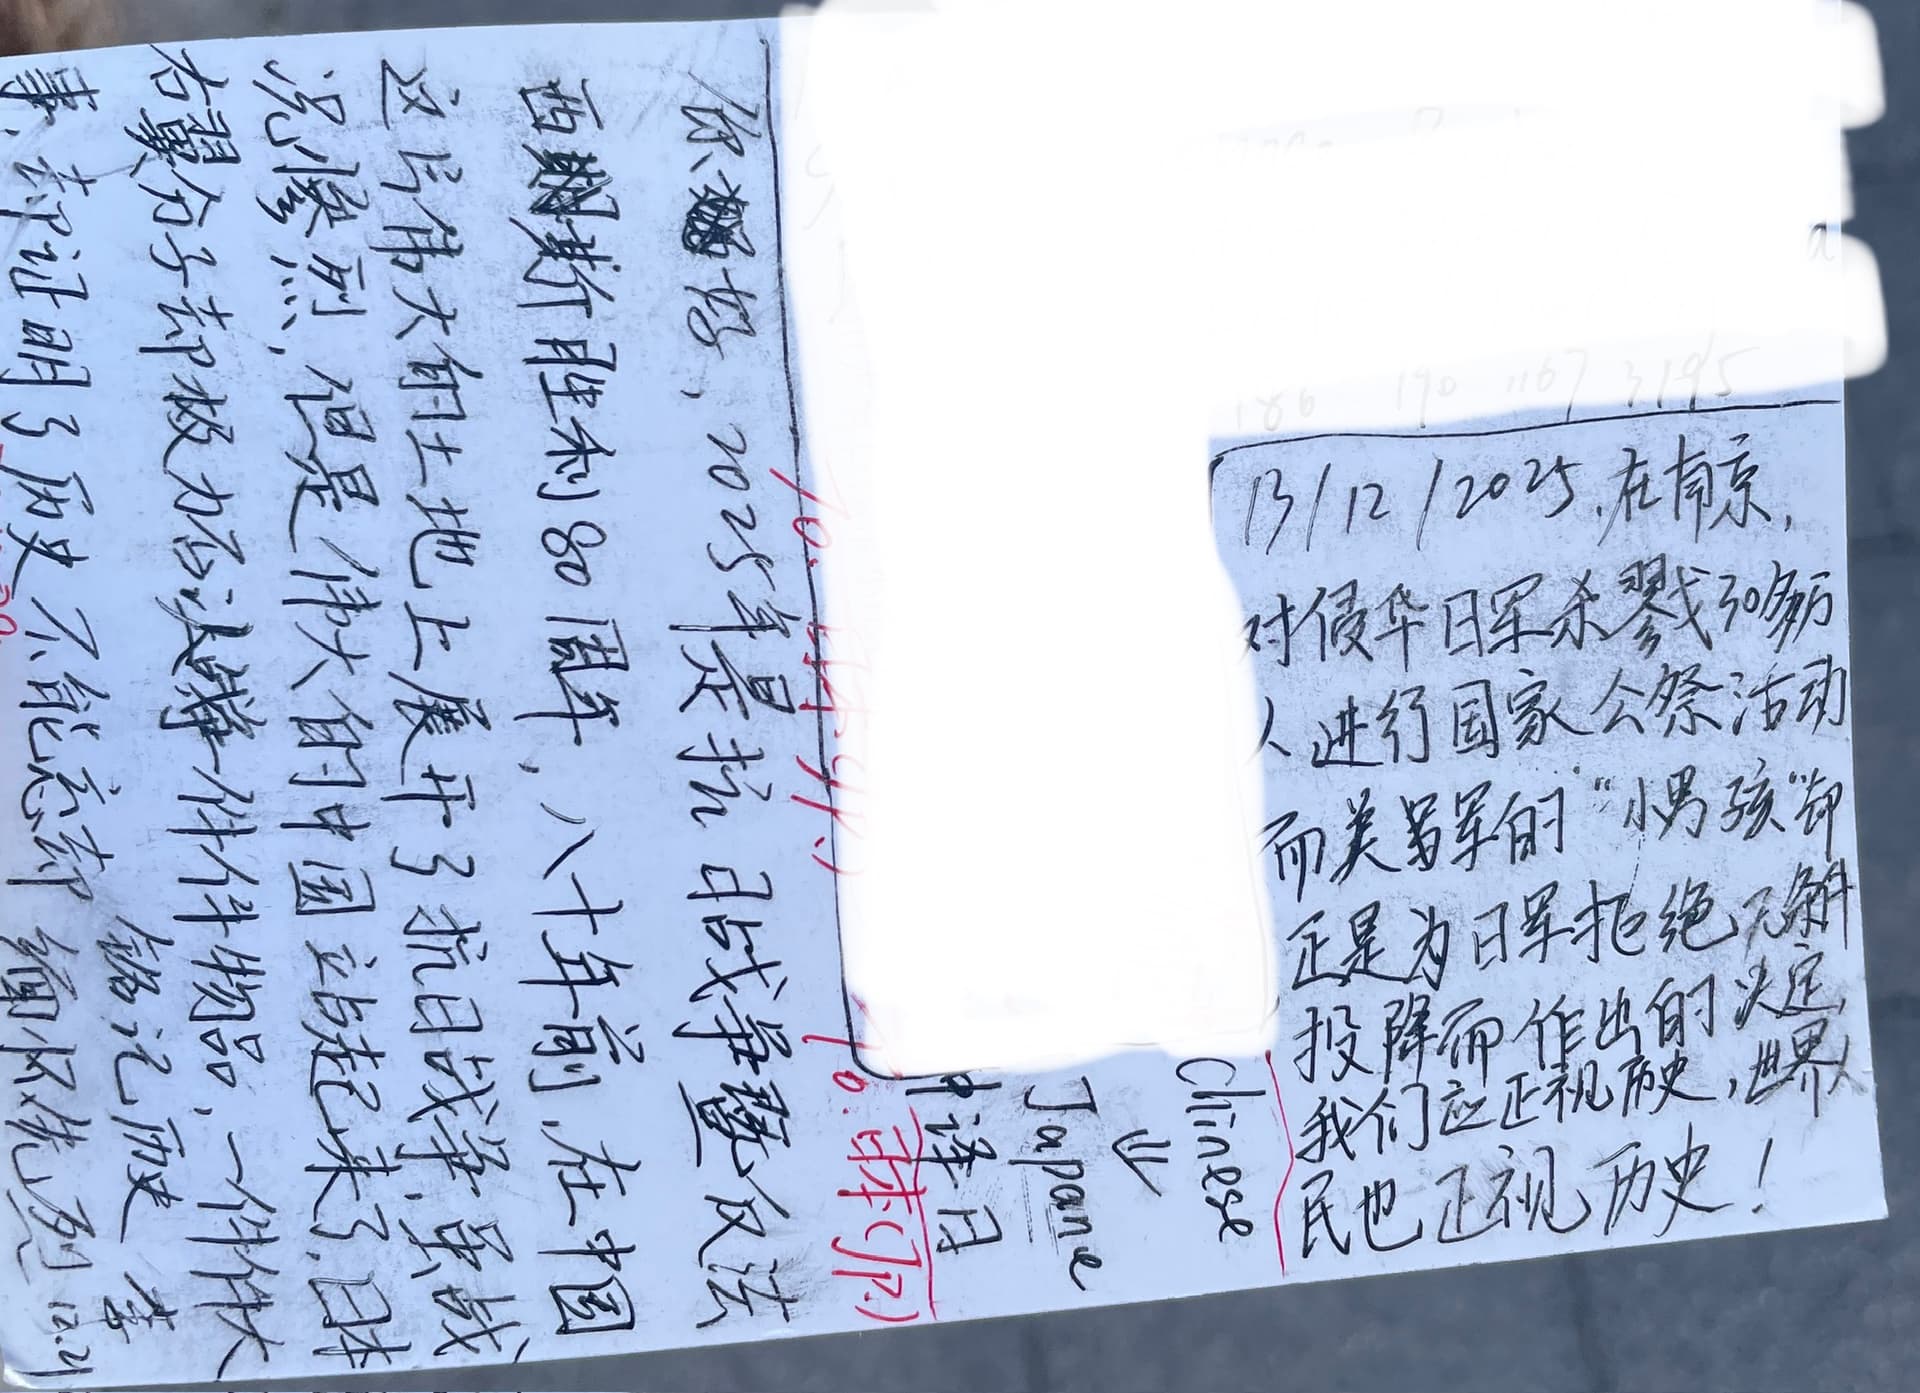 你好，2025年是抗日战争暨反法
西斯胜利80周年，八十年前，在中国
这片伟大的土地上展开了抗日战争，虽战
况惨烈，但是伟大的中国站起来了，日本
右翼分子却极力否决，每一件件物品，一件件大
事，却证明了历史不能忘却 缅怀先烈
铭记历史
12.21
13/12/2025，在南京，
对侵华日军杀戮30多万
人进行国家公祭活动
而美军的“小男孩”却
正是为日军拒绝无条件
投降而作出的决定，
我们应正视历史，世界人
民也正视历史！
Chinese
⇓
Japane
译日
To. 日本(JP.)
To. 日本(JP.)